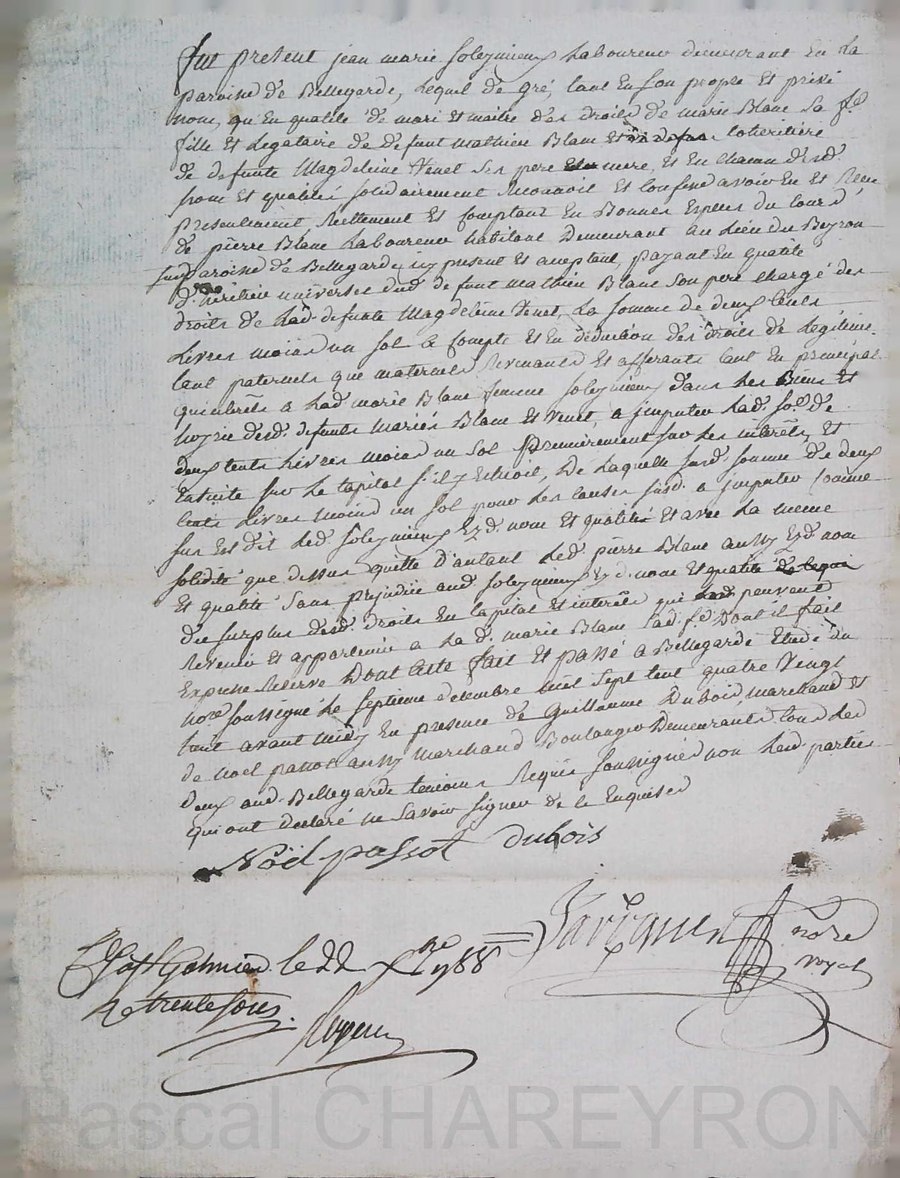 fut present jean marie Soleymieux Laboureur demeurant En la
paroisse de Bellegarde, Lequel de gré, tant En son propre Et privé
nom, qu'En qualité de mari Et maitre des droits de marie Blanc sa fe.
fille Et Légataire de defunt mathieu Blanc Et coheritiere
de defunte Magdeleine Venet ses pere mere, et En chacun desd.
nom Et qualités solidairement reconnoit Et confesse avoir Eu Et Receu
presentement, réellement Et comptant En Bonnes Especes du cours
de pierre Blanc Laboureur habitant Demeurant au Lieu du Beyron
susd. paroisse de Bellegarde icy present Et aceptant, payant En qualité
d'héritier universel dud. defunt mathieu Blanc son pere chargé des
droits de Lad. defunte Magdeleine Venet, La somme de deux cents
Livres moins un sol à compte Et En déduction des droits de Légitime
tant paternels que maternels revenants Et afferants tant En principal
qu'intérêts a Lad. marie Blanc femme Soleymieux dans Les Biens Et
hoirie desd. defunts mariés Blanc Et Venet, a imputer Lad. so. de
deux cents Livres moins un sol Premierement sur Les intérêts, Et
Ensuite sur Le capital s'il y Echoit, De Laquelle susd. somme de deux
cents Livres moins un sol pour Les causes susd. a imputer comme
sus Est dit Led. Soleymieux Ezd. nom Et qualités Et avec La meme
solidité que dessus quitte d'autant Led. pierre Blanc aussy Ezd. nom
Et qualité sans prejudice aud. Soleymieux Ezd. nom Et qualité
du surplus desd. droits En capital Et interêts qui peuvent
Revenir Et appartenir a La d. marie Blanc sad. f. Dont il fait
Expresse Réserve Dont acte fait Et passé a Bellegarde Etude du
nore. soussigné Le septieme decembre mil sept cent quatre vingt
huit avant midy En presence de Guillaume Dubois, marchand Et
de noel passot aussy marchand Boulanger Demeurants tous Les
deux aud. Bellegarde temoins Requis soussignés non Lesd. parties
qui ont déclaré ne savoir signer de ce Enquises
Noël passot dubois
nore
royal
C. a St Galmier le 22 Xbre 1788
R trente sous.
Pascal CHAREYRON